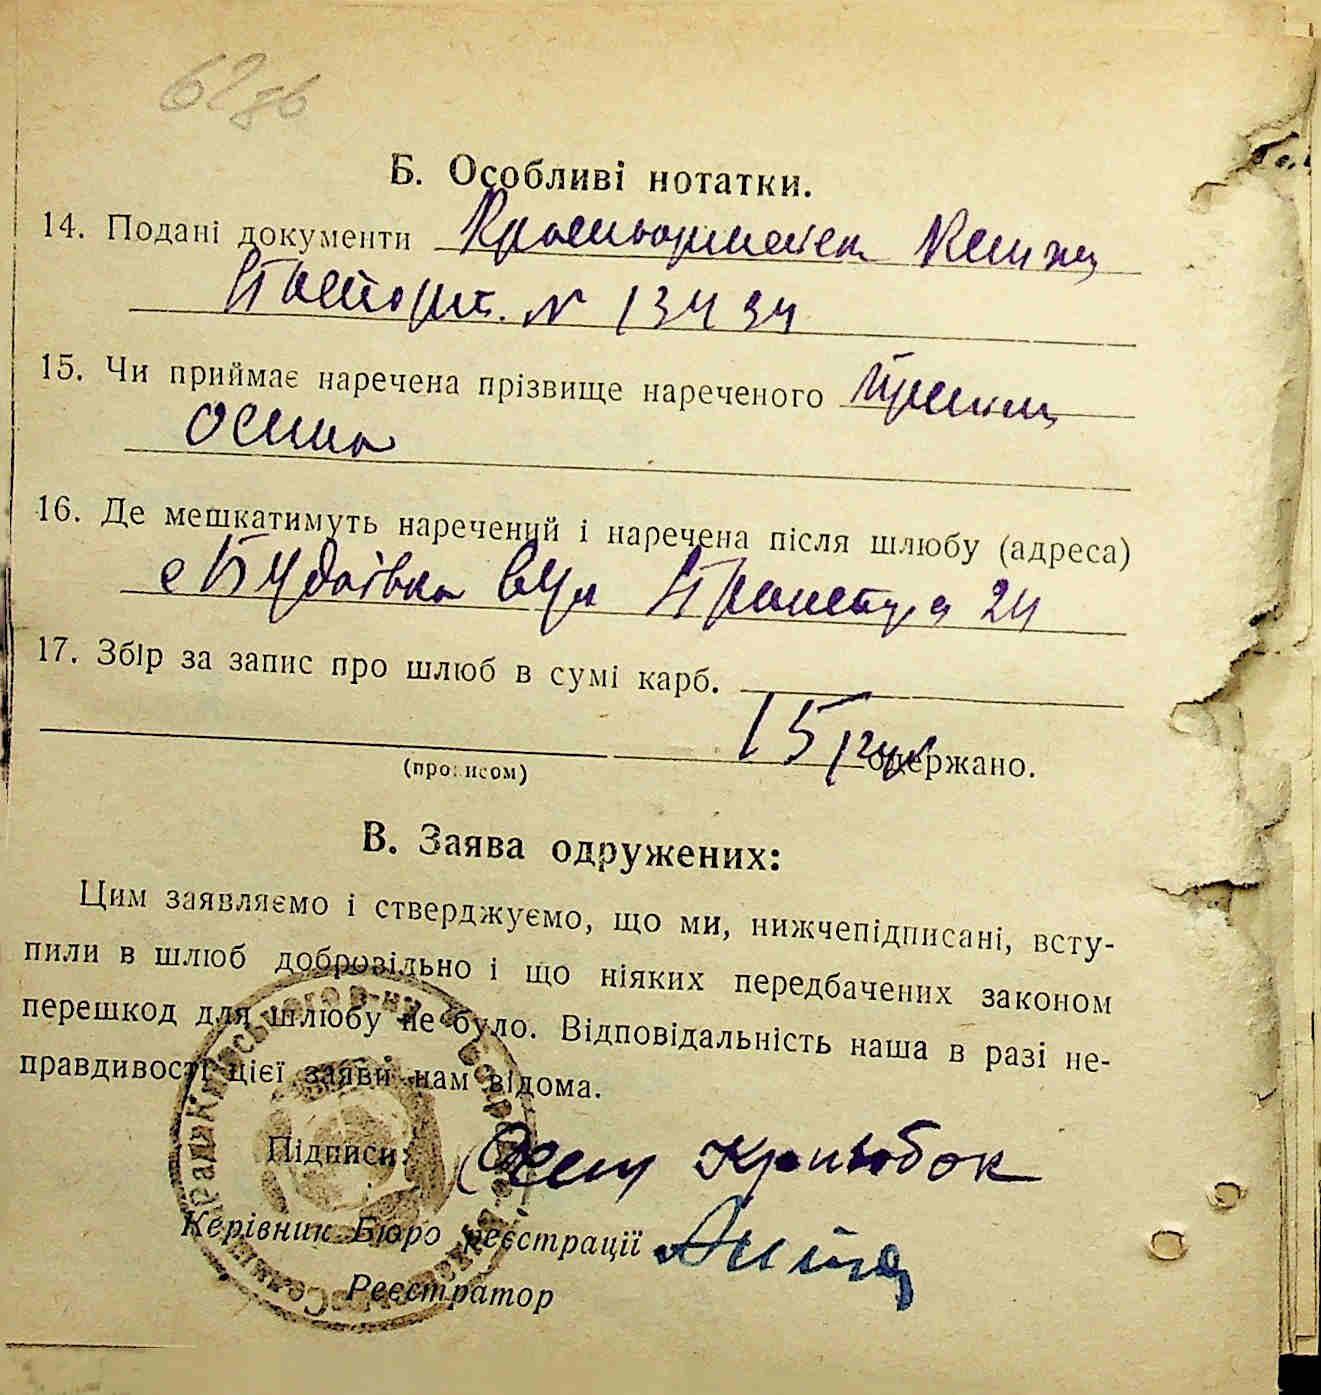 62зв
Б. Особливі нотатки.
14. Подані документи Красноармейск Книжц
Паспорт. N 13434
15. Чи приймає наречена прізвище нареченого
Осипа
16. Де мешкатимуть наречений і наречена після шлюбу (адреса)
с Будаівка вул 24
17. Збір за запис про шлюб в сумі карб.
15 руб одержано.
(прописом)
В. Заява одружених:
Цим заявляємо і стверджуємо, що ми, нижчепідписані, всту-
пили в шлюб добровільно і що ніяких передбачених законом
перешкод для шлюбу не було. Відповідальність наша в разі не-
правдивості цієї заяви нам відома.
Підписи: Кривобок
Керівник Бюро реєстрації
Реєстратор